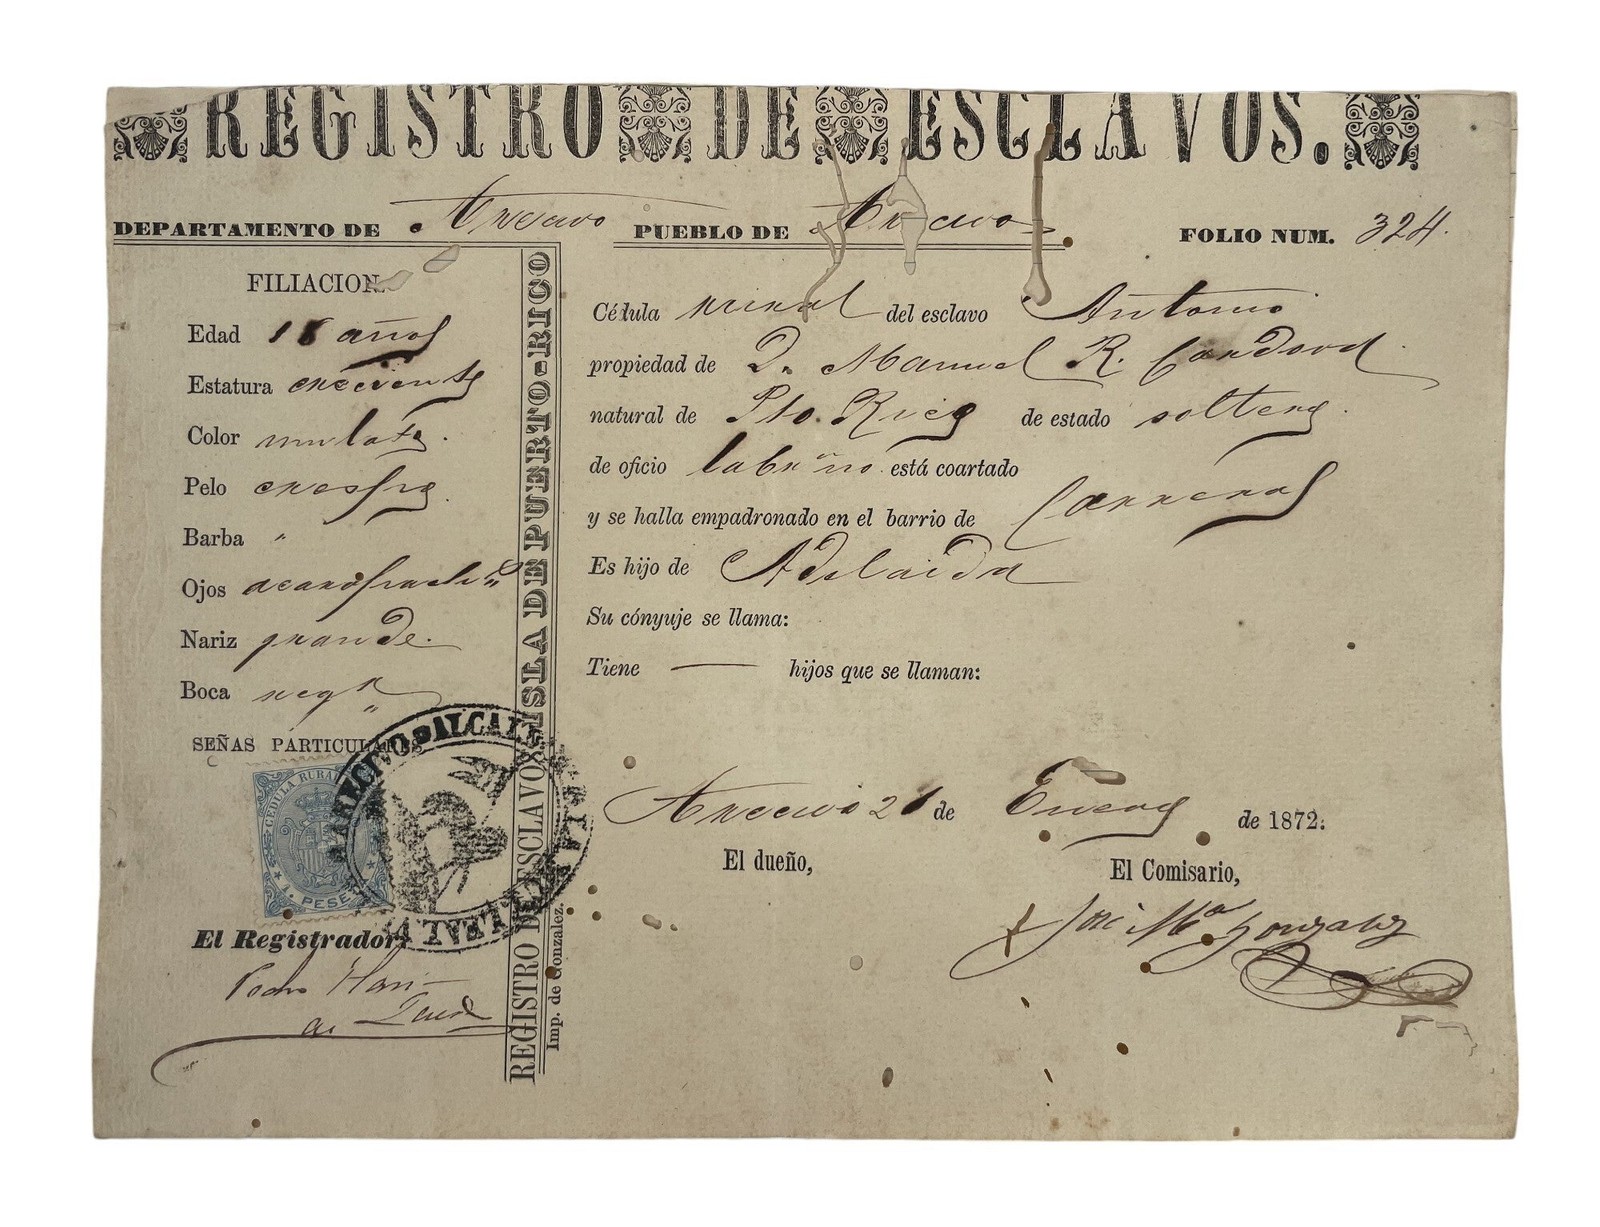 REGISTRO DE ESCLAVOS.
DEPARTAMENTO DE Arecivo PUEBLO DE Arecivo FOLIO NUM. 324.
FILIACION.
Edad 18 años
Estatura creciente
Color mulato.
Pelo crespo.
Barba "
Ojos acaro
Nariz grande.
Boca regr
SEÑAS PARTICULARES
CEDULA RURAL
1. PESETA
ARECIVO ALCALDIA
El Registrador,
Pedro
de
ISLA DE PUERTO-RICO
REGISTRO DE ESCLAVOS
Imp. de Gonzalez.
Cédula del esclavo Antonio
propiedad de D. Manuel R. Cordova.
natural de Pto. Rico de estado soltero.
de oficio labrño. está coartado
y se halla empadronado en el barrio de Carreras
Es hijo de Adelaida
Su cónyuje se llama:
Tiene — hijos que se llaman:
Arecivo 21 de Enero de 1872.
El dueño,
El Comisario,
José Ma Gonzalez